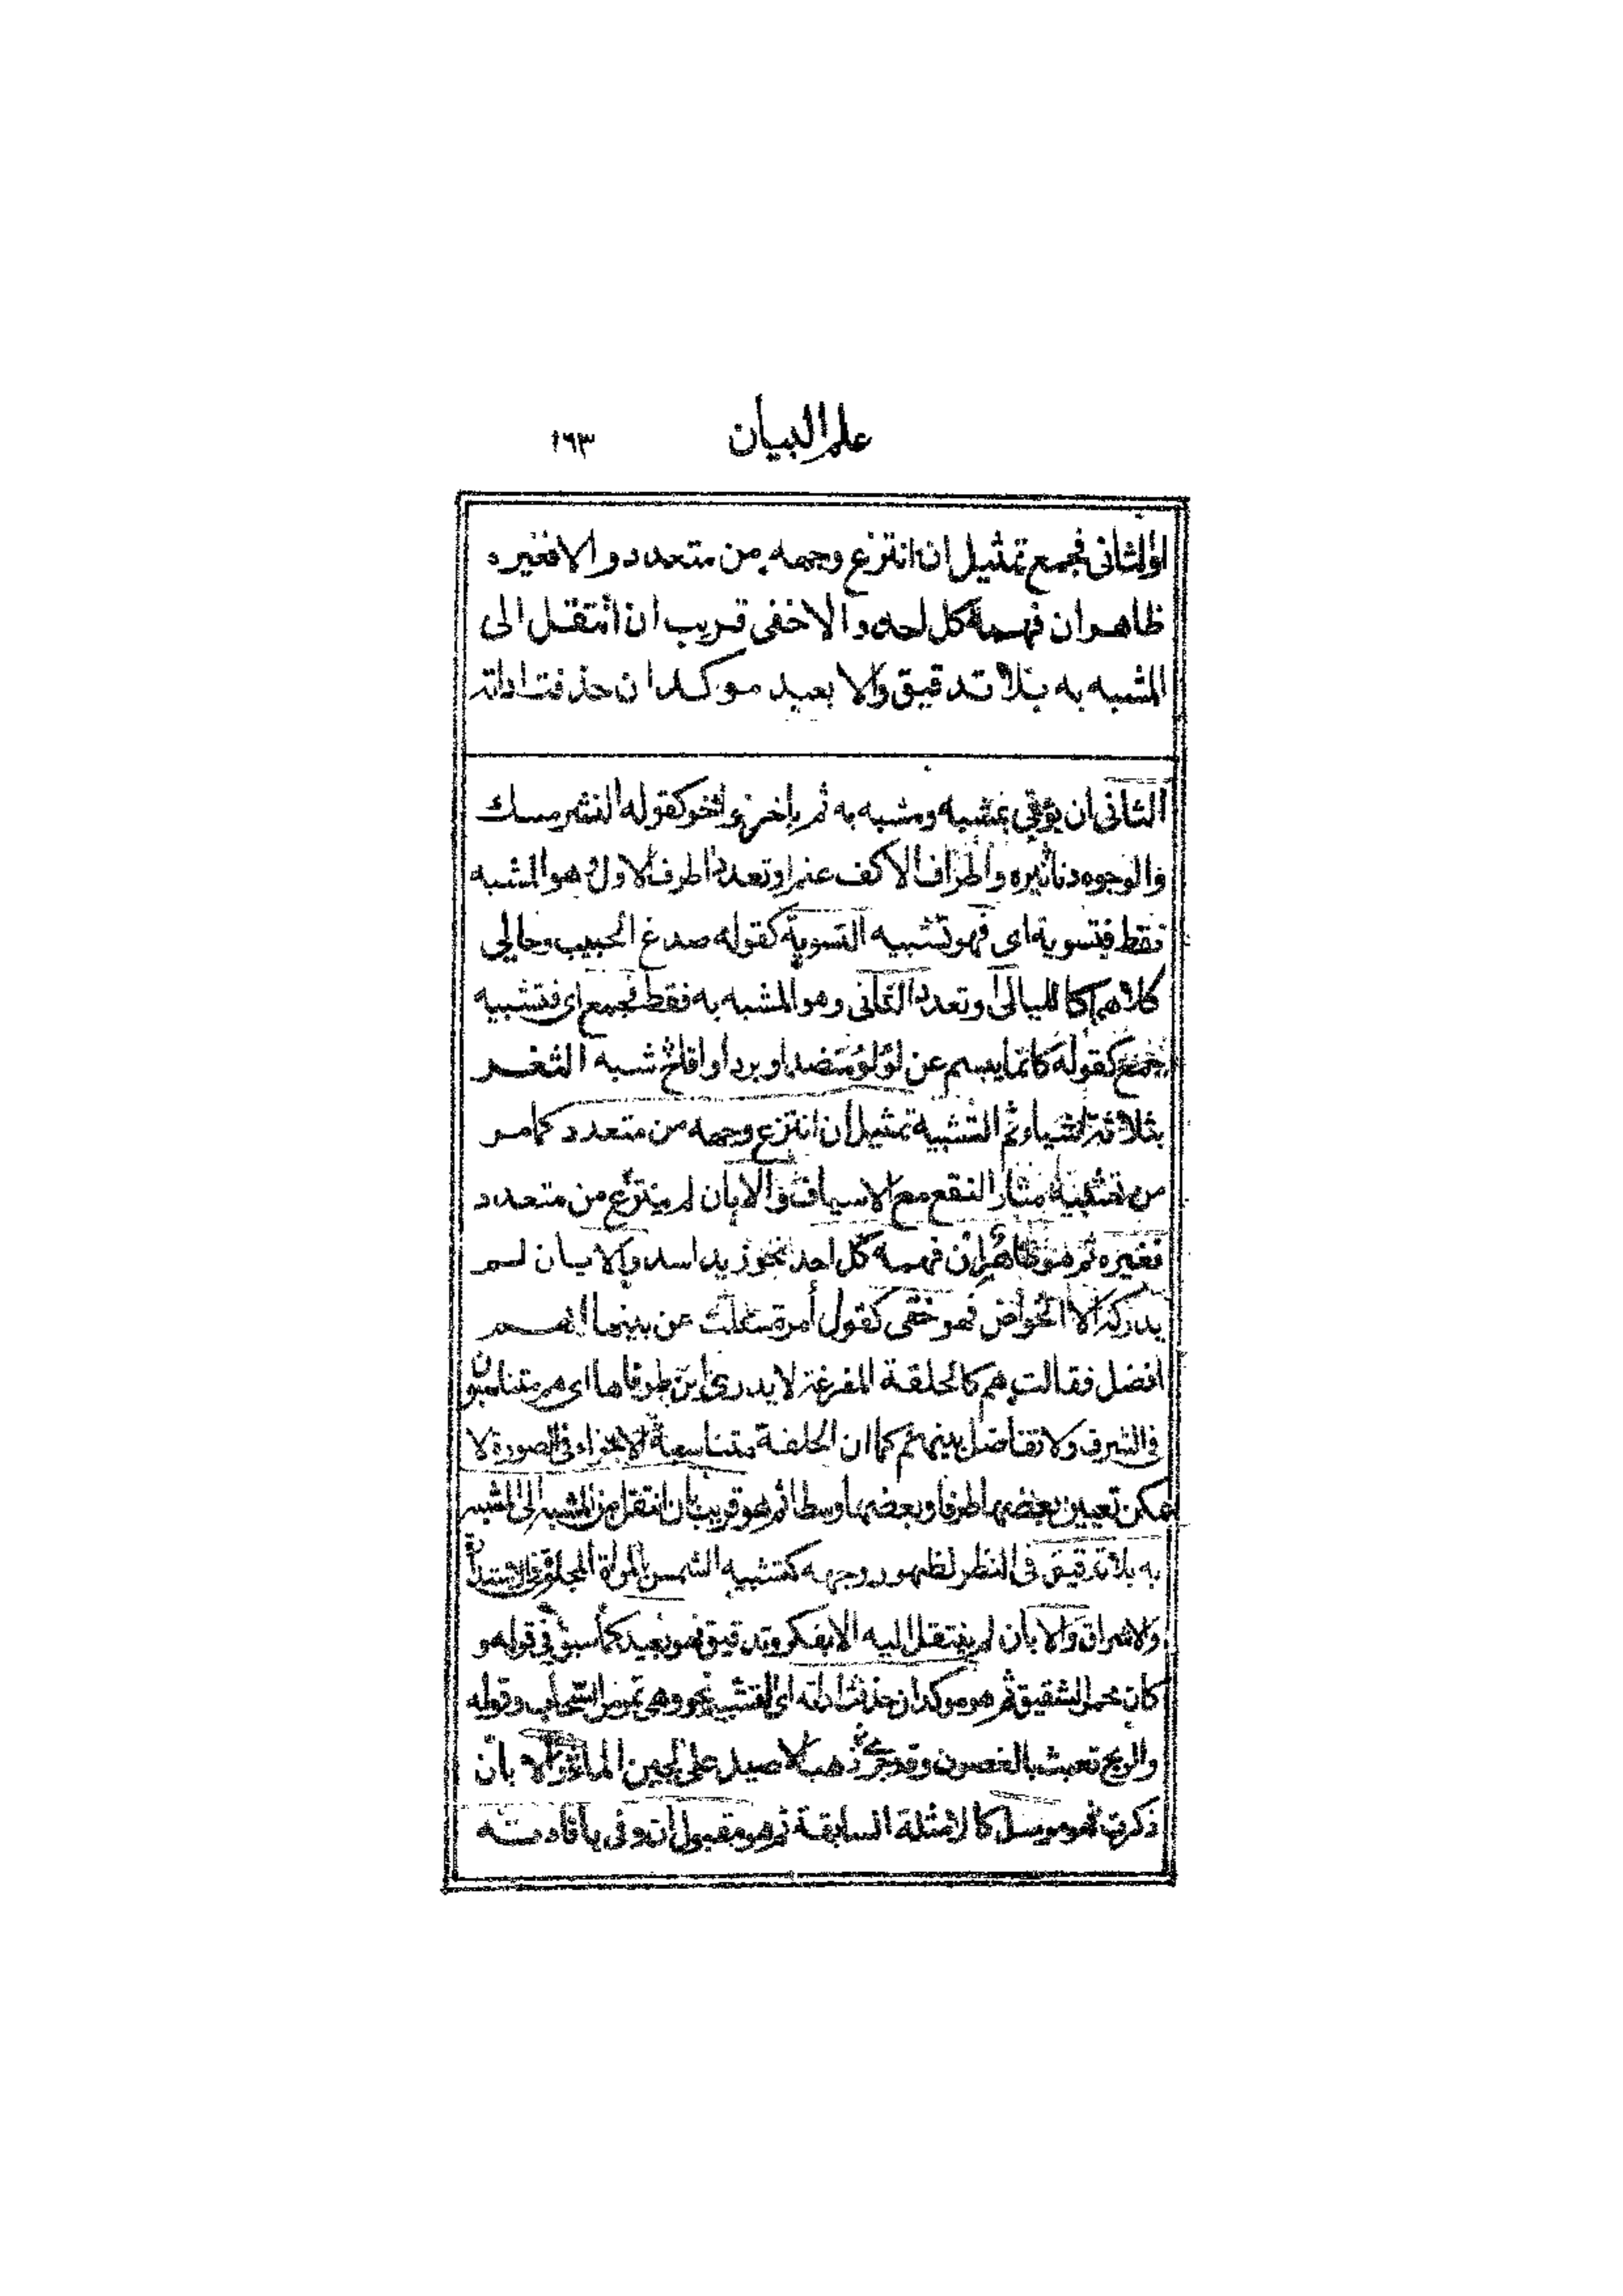 علم البيان ١٦٣
او الثانى فجمع تمثيل ان انتزع وجهه من متعدد والا فغيره
ظاهر ان فهمه كل احد والا خفى قريب ان انتقل الى
المشبه به بلا تدقيق والا بعيد موكد ان حذفت اداته
الثانى ان يؤتى بمشبه ومشبه به ثم باخر واخر كقوله النشر مسك
والوجوه دنانير واطراف الاكف عنم او تعدد الطرف الاول هو المشبه
فقط فتسوية اى فهو تشبيه التسوية كقوله صدغ الحبيب وحالى
كلاهما كالليالى او تعدد الثانى وهو المشبه به فقط فجمع اى فتشبيه
جمع كقوله كانما يبسم عن لؤلؤ منضد او برد او اقاح شبه الثغر
بثلاثة اشياء ثم التشبيه تمثيل ان انتزع وجهه من متعدد كما مر
من تشبيه مثار النقع مع الاسياف والا بان لم ينتزع من متعدد
فغيره ثم هو ظاهر ان فهمه كل احد نحو زيد اسد والا بان لم
يدركه الا الخواص فهو خفى كقول امرة سئلت عن بينها ايهم
افضل فقالت هم كالحلقة المفرغة لا يدرى اين طرفاها اى هم متناسبون
فى الشرف ولا تفاضل بينهم كما ان الحلقة متناسبة الاجزاء فى الصورة لا
يمكن تعيين بعضها طرفا وبعضها وسطا ثم هو قريب بان انتقل من المشبه الى المشبه
به بلا تدقيق فى النظر لظهور وجهه كتشبيه الشمس بالمراة المجلوة فى الاستدارة
والاشراق والا بان لم ينتقل اليه الا بفكر وتدقيق فهو بعيد كما سبق فى قوله و
كان محمر الشقيق ثم هو موكد ان حذفت اداته اى التشبيه نحو وهى تمر مر السحاب وقوله
والريح تعبث بالغصون وقد جرى ذهب الاصيل على لجين الماء والا بان
ذكرت فهو مرسل كالامثلة السابقة ثم هو مقبول ان وفى بافادته